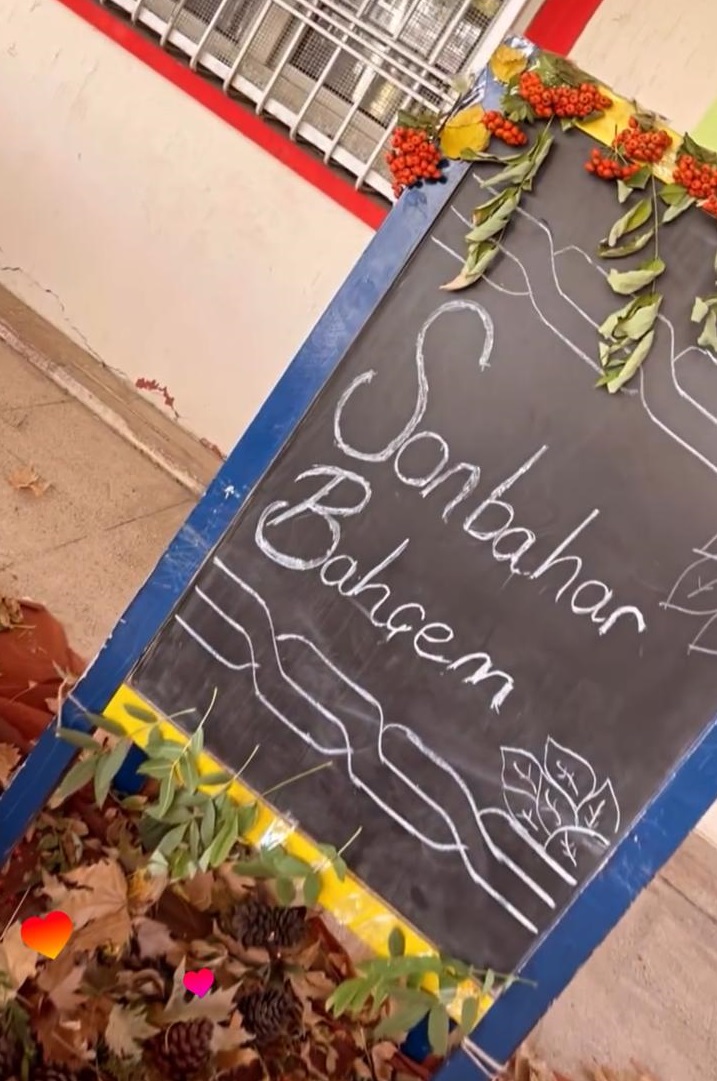 Sonbahar
Bahçem